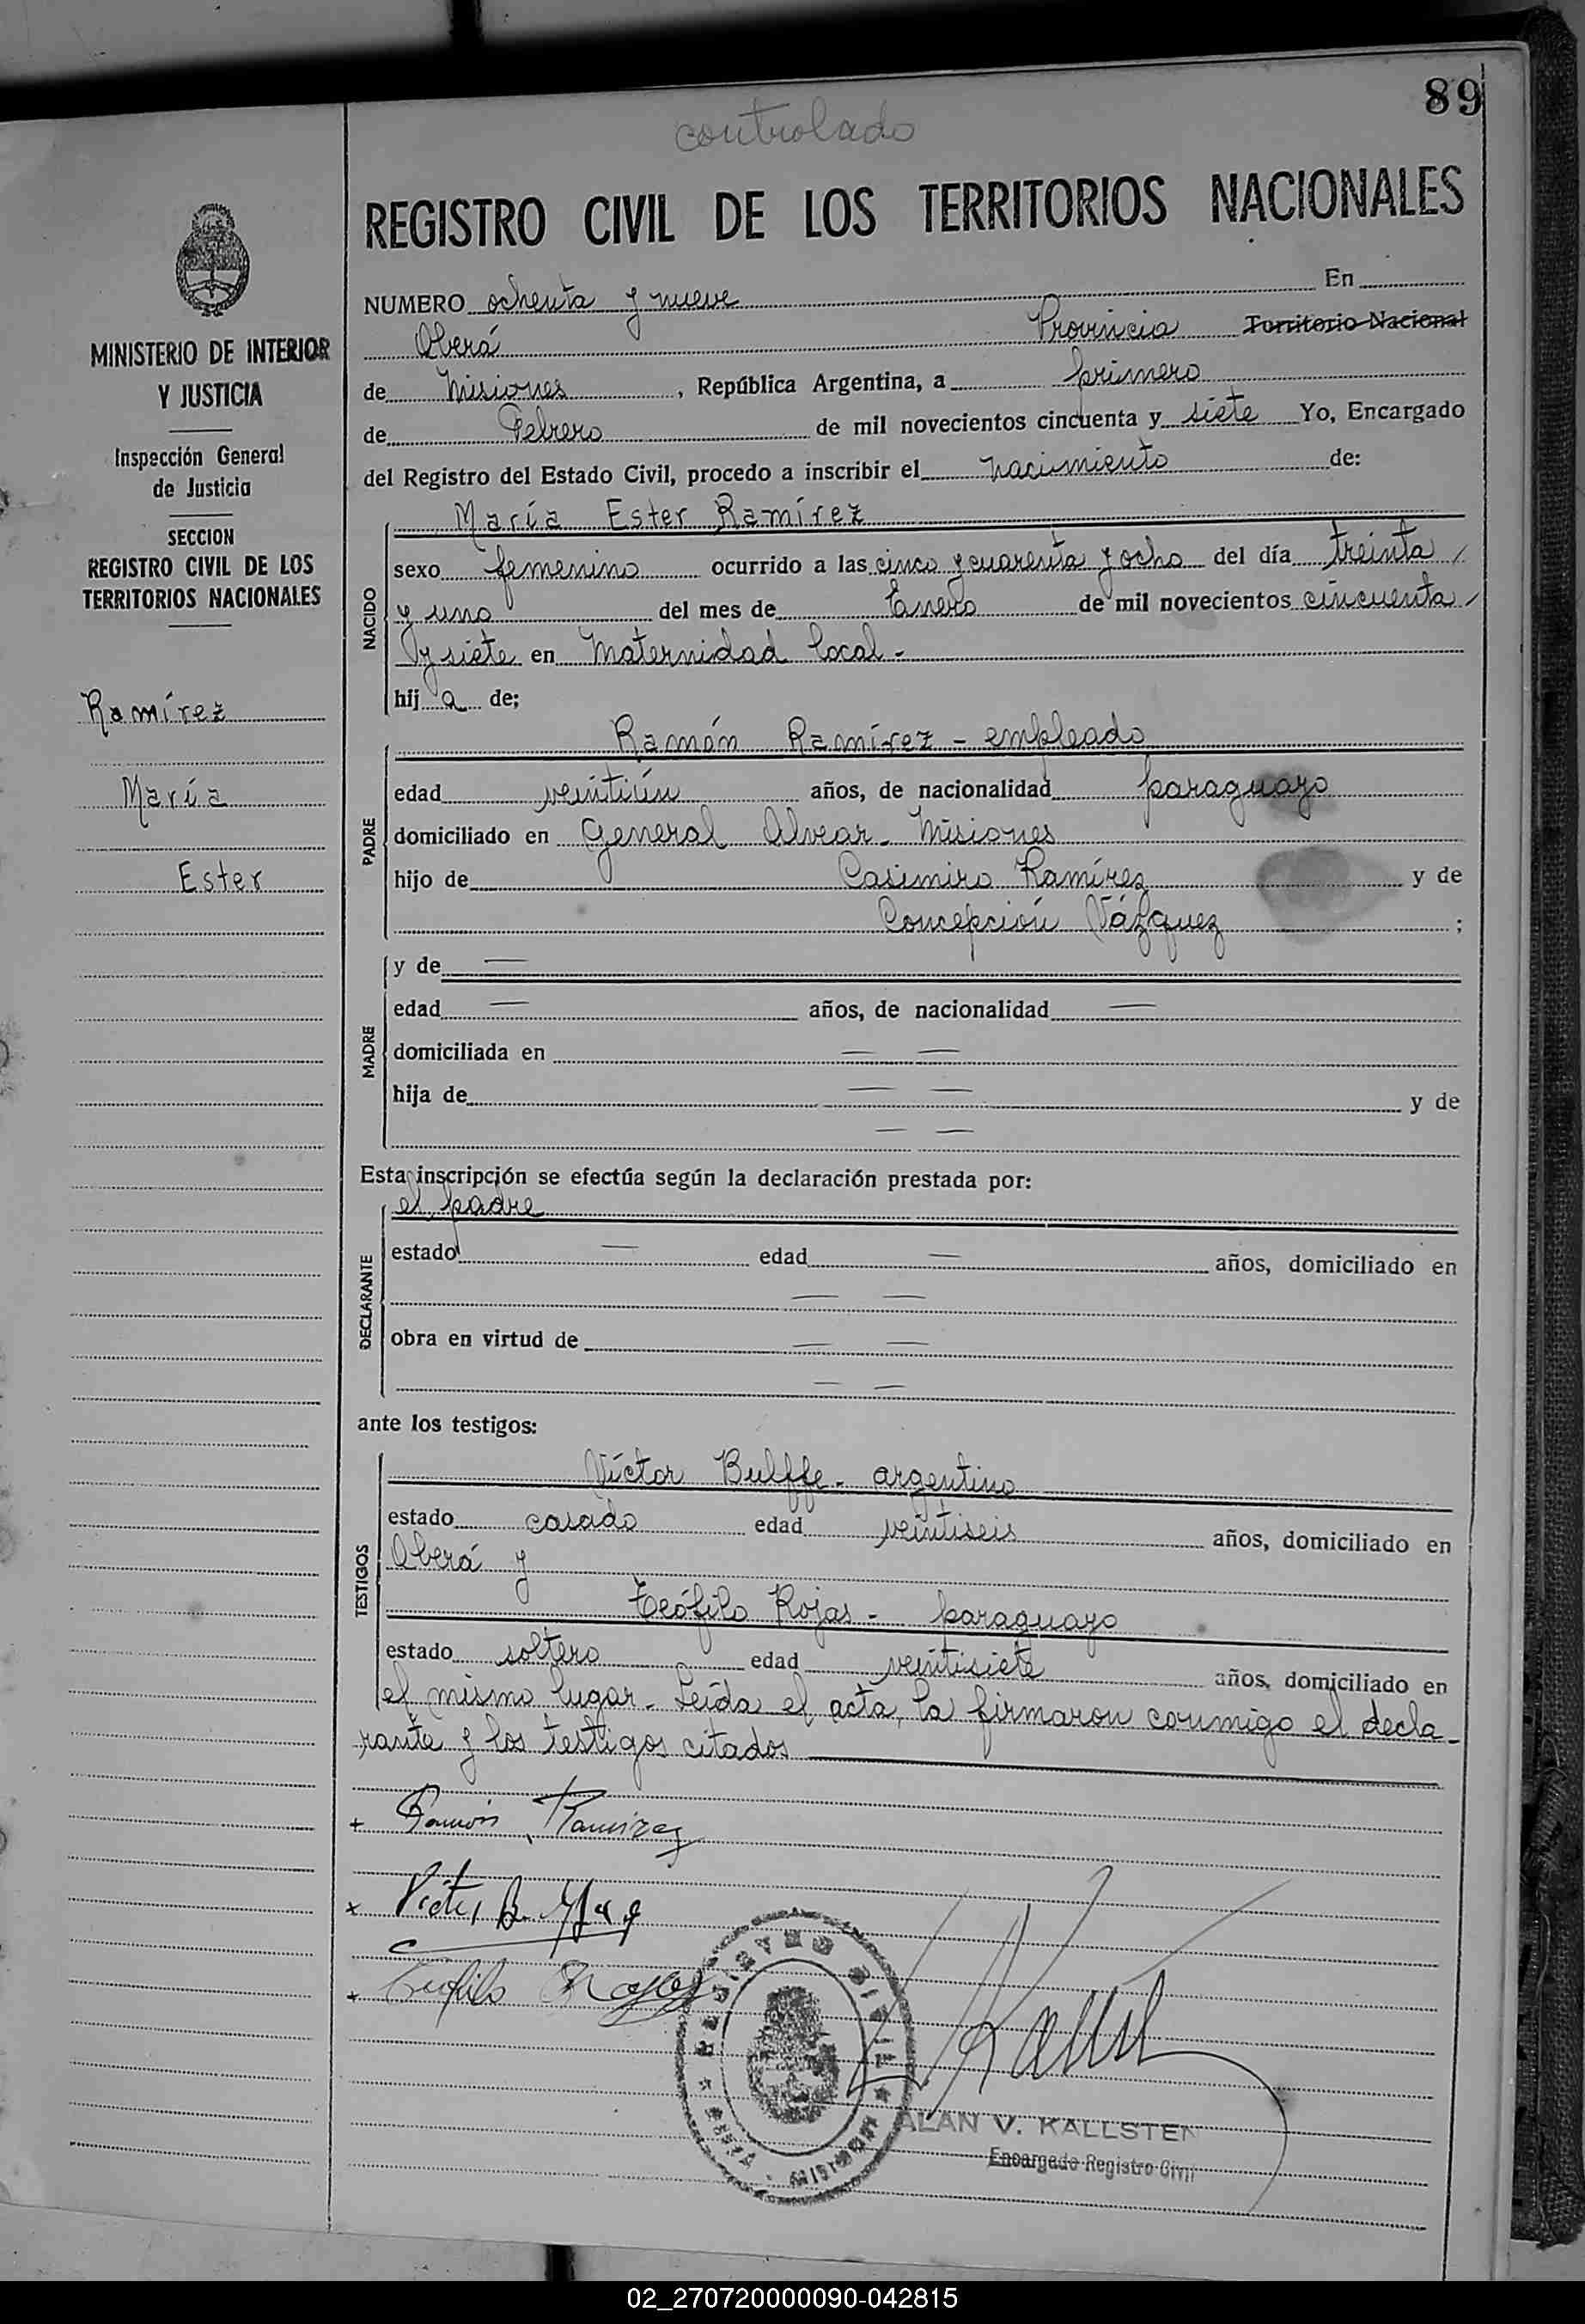 89
controlado
REGISTRO CIVIL DE LOS TERRITORIOS NACIONALES
MINISTERIO DE INTERIOR
Y JUSTICIA
Inspección General
de Justicia
SECCION
REGISTRO CIVIL DE LOS
TERRITORIOS NACIONALES
Ramírez
María
Ester
NUMERO ochenta y nueve En
Oberá Provincia Territorio Nacional
de Misiones, República Argentina, a primero
de Febrero de mil novecientos cincuenta y siete Yo, Encargado
del Registro del Estado Civil, procedo a inscribir el nacimiento de:
NACIDO
María Ester Ramírez
sexo femenino ocurrido a las cinco y cuarenta y ocho del día treinta
y uno del mes de Enero de mil novecientos cincuenta
y siete en Maternidad local.-
hij a de;
PADRE
Ramón Ramírez - empleado
edad veintiún años, de nacionalidad paraguayo
domiciliado en General Alvear - Misiones
hijo de Casimiro Ramírez y de
Concepción Vázquez ;
MADRE
y de —
edad — años, de nacionalidad —
domiciliada en — —
hija de — — y de
— —
Esta inscripción se efectúa según la declaración prestada por:
DECLARANTE
el padre
estado — edad — años, domiciliado en
— —
obra en virtud de — —
— —
ante los testigos:
TESTIGOS
Víctor Bulffe - argentino
estado casado edad veintiseis años, domiciliado en
Oberá y
Teófilo Rojas - paraguayo
estado soltero edad veintisiete años, domiciliado en
el mismo lugar - Leída el acta, la firmaron conmigo el decla-
rante y los testigos citados
+ Ramón Ramírez
x Victor B.
+ Teofilo Rojas
REGISTRO CIVIL
OBERA
ALAN V. KALLSTEN
Encargado Registro Civil
02_270720000090-042815